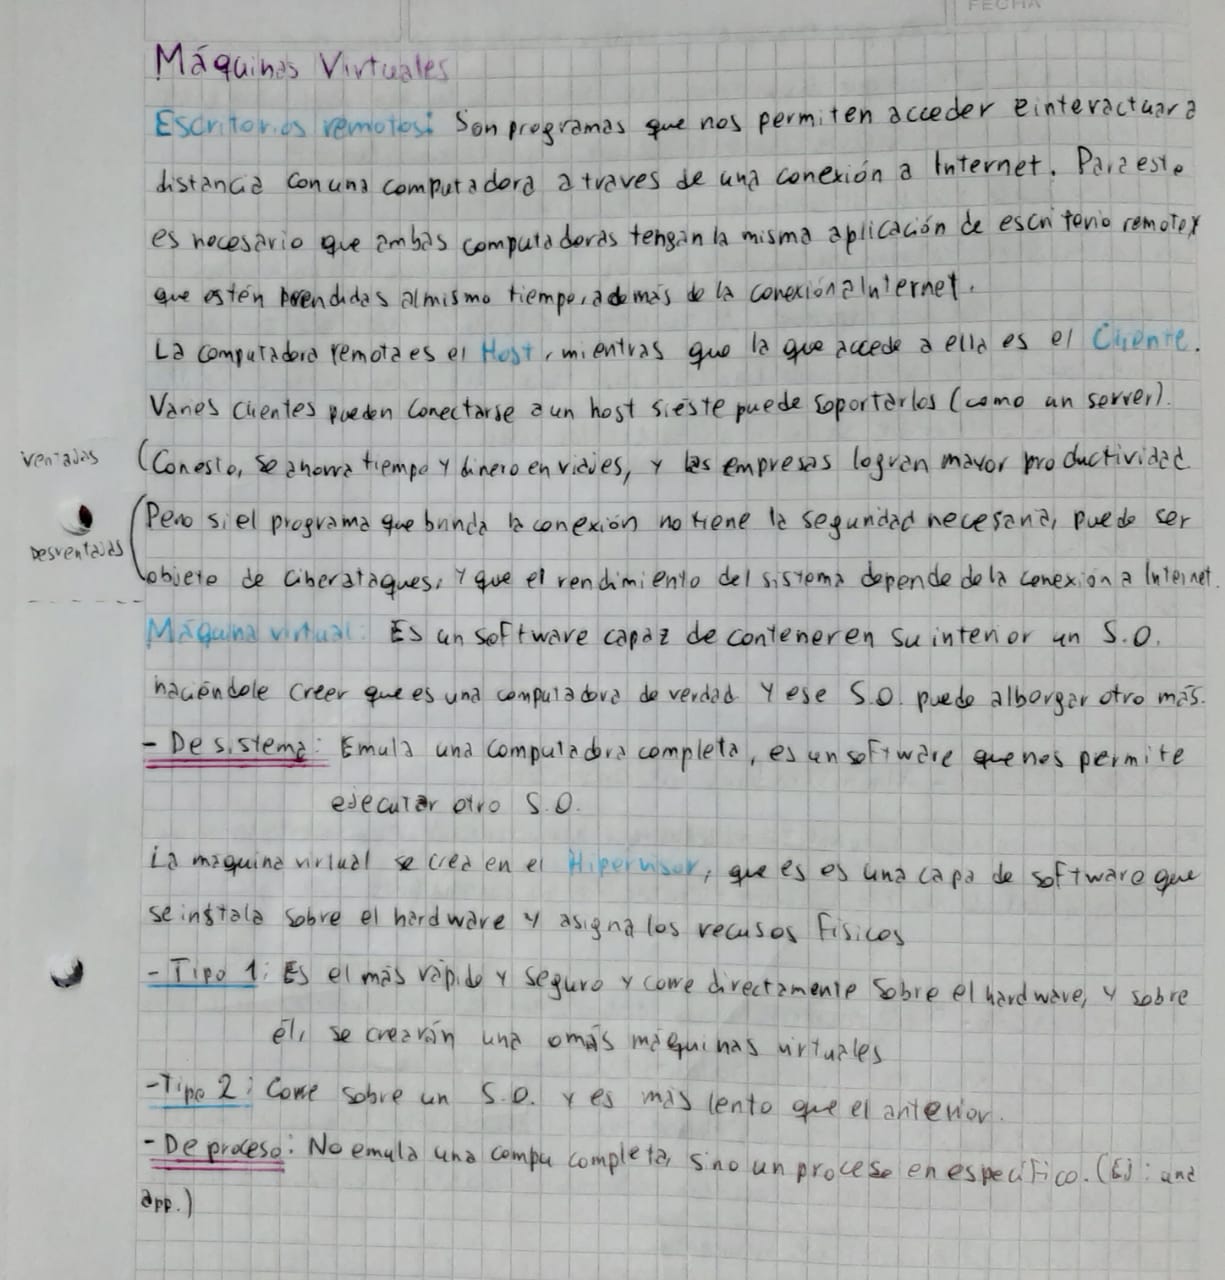 FECHA
Máquinas Virtuales
Escritorios remotos: Son programas que nos permiten acceder e interactuar a
distancia con una computadora a traves de una conexión a Internet. Para esto
es necesario que ambas computadoras tengan la misma aplicación de escritorio remoto y
que estén prendidas al mismo tiempo, además de la conexión a Internet.
La computadora remota es el Host, mientras que la que accede a ella es el Cliente.
Varios clientes pueden conectarse a un host si éste puede soportarlos (como un server).
ventajas (Con esto, se ahorra tiempo y dinero en viajes, y las empresas logran mayor productividad
(Pero si el programa que brinda la conexión no tiene la seguridad necesaria, puede ser
Desventajas objeto de ciberataques, y que el rendimiento del sistema depende de la conexión a Internet.
Máquina virtual: Es un software capaz de contener en su interior un S.O.
haciéndole creer que es una computadora de verdad y ese S.O. puede alborgar otro más.
- De sistema: Emula una computadora completa, es un software que nos permite
ejecutar otro S.O.
La máquina virtual se crea en el Hipervisor, que es es una capa de software que
se instala sobre el hardware y asigna los recusos físicos
- Tipo 1: Es el más rápido y seguro y corre directamente sobre el hardware, y sobre
él, se crearán una o más máquinas virtuales
- Tipo 2: Corre sobre un S.O. y es más lento que el anterior.
- De proceso: No emula una compu completa, sino un proceso en específico. (Ej: una
app.)